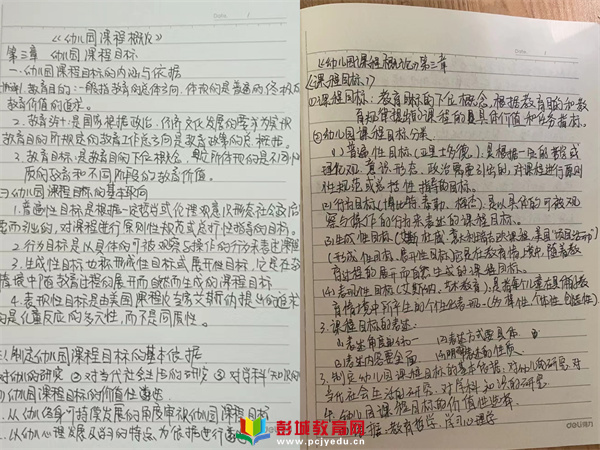 《幼儿园课程概论》
第三章 幼儿园课程目标
一.幼儿园课程目标的内涵与依据
教育目的:一般指教育的总体方向,体现的是普遍的终极的
教育价值的追求。
2.教育方针:是国家根据政治、经济文化发展的要求为实现
教育目的所规定的教育工作总方向是教育政策的总概括。
3.教育目标:是教育目的的下位概念,
质的教育和不同阶段的教育价值。
幼儿园课程目标的基本取向
1.普遍性目标是根据一定哲学或伦理观意识形态社会政治
要而引出的,对课程进行原则性规范或总括性指导的目标。
2.行为目标是以具体的可被观察与操作的行为来表述课程
3.生成性目标也称形成性目标或展开性目标,它是在教
育情境中随教育过程的展开而自然而生成的课程目标
4.表现性目标是由美国课程论 艾斯纳提出的追求
的是儿童反应的多元性,而不是同质性。
制定幼儿园课程目标的基本依据
对幼儿的研究 ②对当代社会生活的研究 ③对学科知识的
幼儿园课程目标的价值性追求
1.从幼儿终身可持续发展的角度审视幼儿园课程目标
2.从幼儿心理发展及学习的特点为依据进行
《幼儿园课程概论》第三章
(课程目标)
课程目标:教育目标的下位概念,根据教育目的和教
育规律提出的课程的具体价值和任务指标。
幼儿园课程目标分类
(1)普遍性目标(亚里士多德)是根据一定的哲学或
伦理观、意识形态、政治需要引出的,对课程进行原则
性规范或总括性指导的目标。
(2)行为目标(博比特、泰勒、 )是以具体的可被观
察与操作的行为来表述的课程目标。
(3)生成性目标(
(形成性目标、展开性目标)它是在教育情境中,随着教
育过程的展开而自然生成的课程目标
(4)表现性目标(艾斯纳、艺术教育)是指每个儿童在具体
教育情境中所产生的个性化表现
3.课程目标的表述
(1)表述角度要统一 (2)表述方式要具体
(3)表述内容要全面 (4)明确表述的性质
3.制定幼儿园课程目标的基本依据:对幼儿的研究,对
当代社会生活的研究,对学科知识的研究.
4.幼儿园课程目标的价值性选择
依据:教育哲学、学习心理学
deli得力
彭城教育网
www.pcjyedu.cn